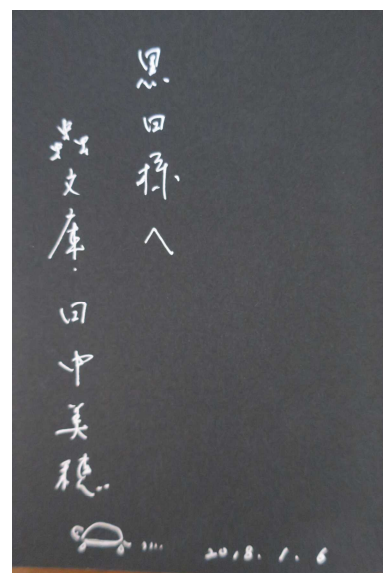 黒田様へ
蟲文庫・田中美穂
2018.1.6